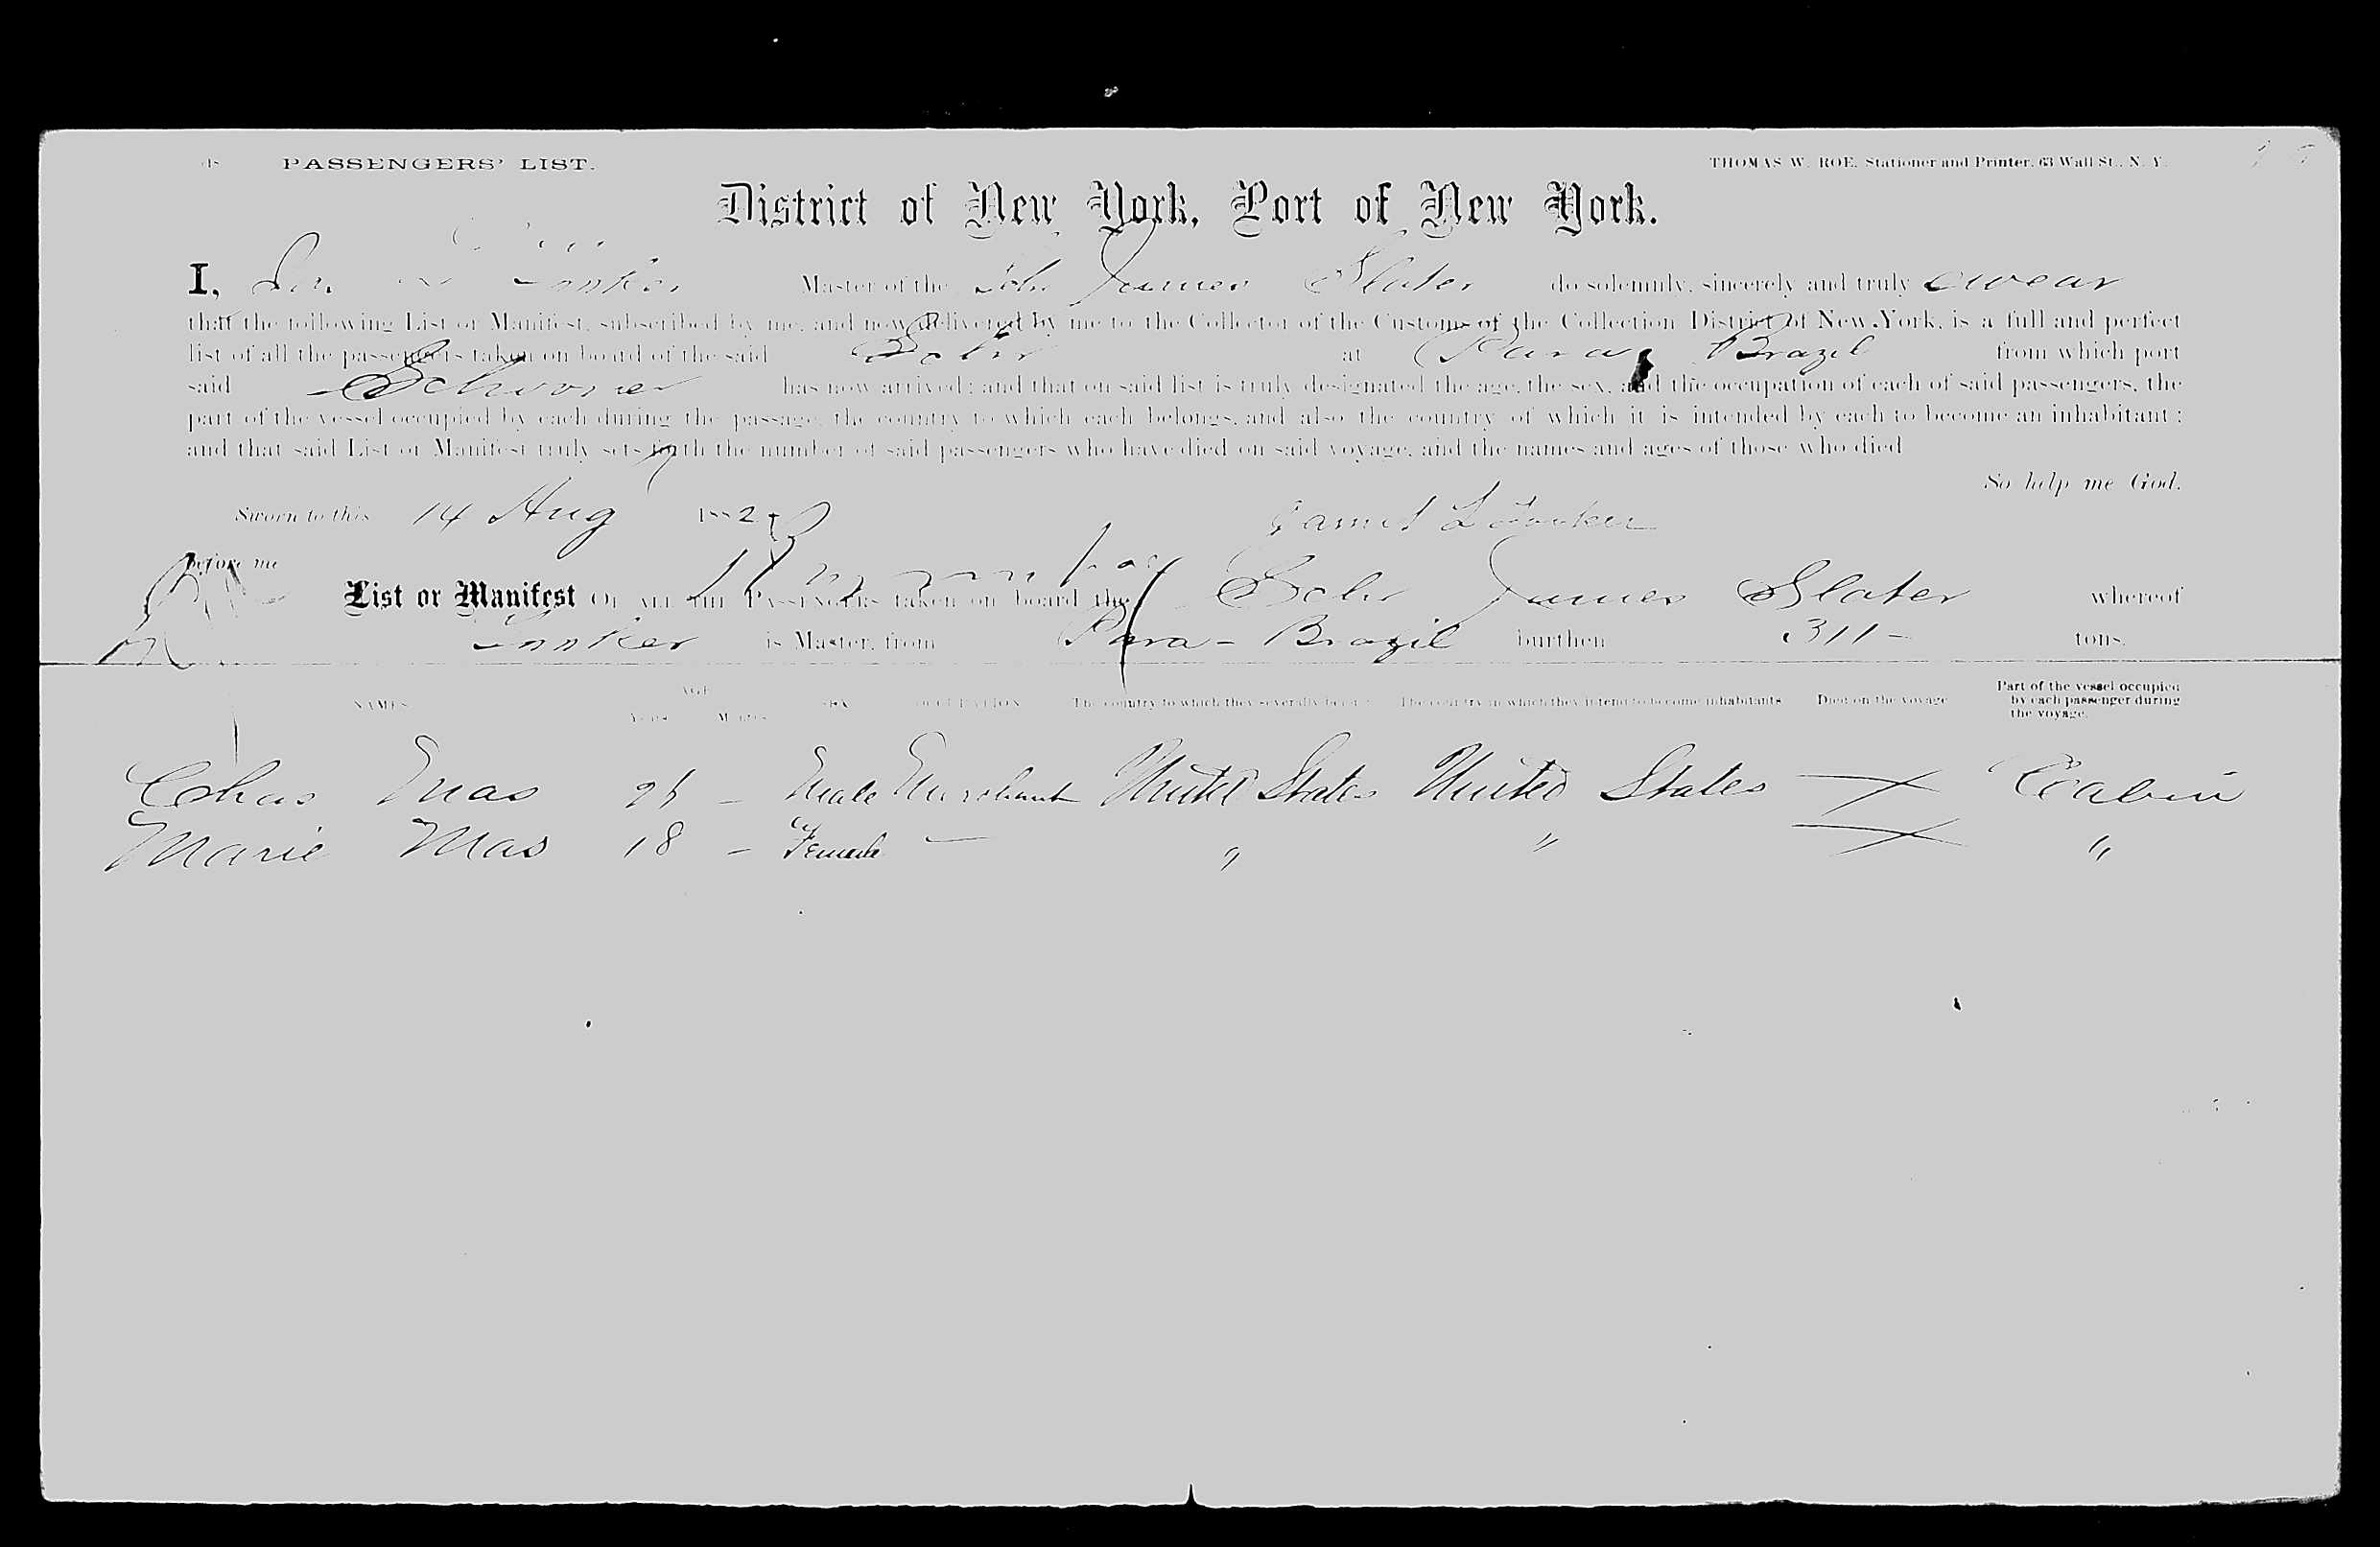 PASSENGERS' LIST. THOMAS W. ROE, Stationer and Printer, 63 Wall St., N. Y.
District of New York, Port of New York.
I, Master of the Schr James Slater do solemnly, sincerely and truly swear
that the following List or Manifest, subscribed by me, and now delivered by me to the Collector of the Customs of the Collection District of New York, is a full and perfect
list of all the passengers taken on board of the said Schr at Para, Brazil from which port
said Schooner has now arrived; and that on said list is truly designated the age, the sex, and the occupation of each of said passengers, the
part of the vessel occupied by each during the passage, the country to which each belongs, and also the country of which it is intended by each to become an inhabitant;
and that said List or Manifest truly sets forth the number of said passengers who have died on said voyage, and the names and ages of those who died
So help me God.
Sworn to this 14 Aug 1882 James L
before me
List or Manifest OF ALL THE PASSENGERS taken on board the Schr James Slater whereof
is Master, from Para - Brazil burthen 311 - tons.
NAMES AGE SEX OCCUPATION The country to which they severally belong The country in which they intend to become inhabitants Died on the voyage Part of the vessel occupied
Years Months by each passenger during
the voyage.
Chas Mas - Male Merchant United States United States Cabin
Marie Mas 18 - Female — " " "